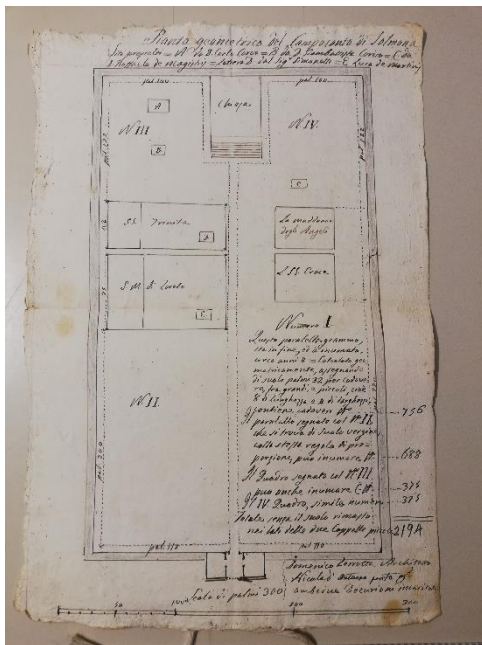 Pianta geometrica del Camposanto di Solmona
Siti proprietor = A da D. Carlo Corvo = B da D. Giambattista Corvo = C da
D. Raffaele de = D dal Sig. = E. Luca de Martinis
pal. 100
pal. 100
Chiesa
A
N III
N IV.
B
C
SS. Trinita
D
La madonna
degli Angeli
S. M. di Loreto
E
SS. Croce
Numero I
Questo parallelogrammo,
sta in fine, ed à inumato,
circa anni 8 = Calcolato geo
metricamente, assegnando
di suolo palmi 32 per cadave
re, fra grandi, e piccioli, cioè
8 di lunghezza e 4 di larghezza,
contiene cadaveri N° 756
Il paralello segnato col N° II,
che si trova di suolo vergine
colla stessa regola di pro-
porzione, può inumare N° 688
Il Quadro segnato col N° III
può anche inumare C. N° 375
Il IV Quadro, simile numero 375
Totale, senza il suolo rimasto
nei lati delle due Cappelle 2194
N II.
pal. 200
pal. 110
pal. 110
Domenico Architetto
Nicola
ambedue
50
100
Scala di palmi 300
200
300